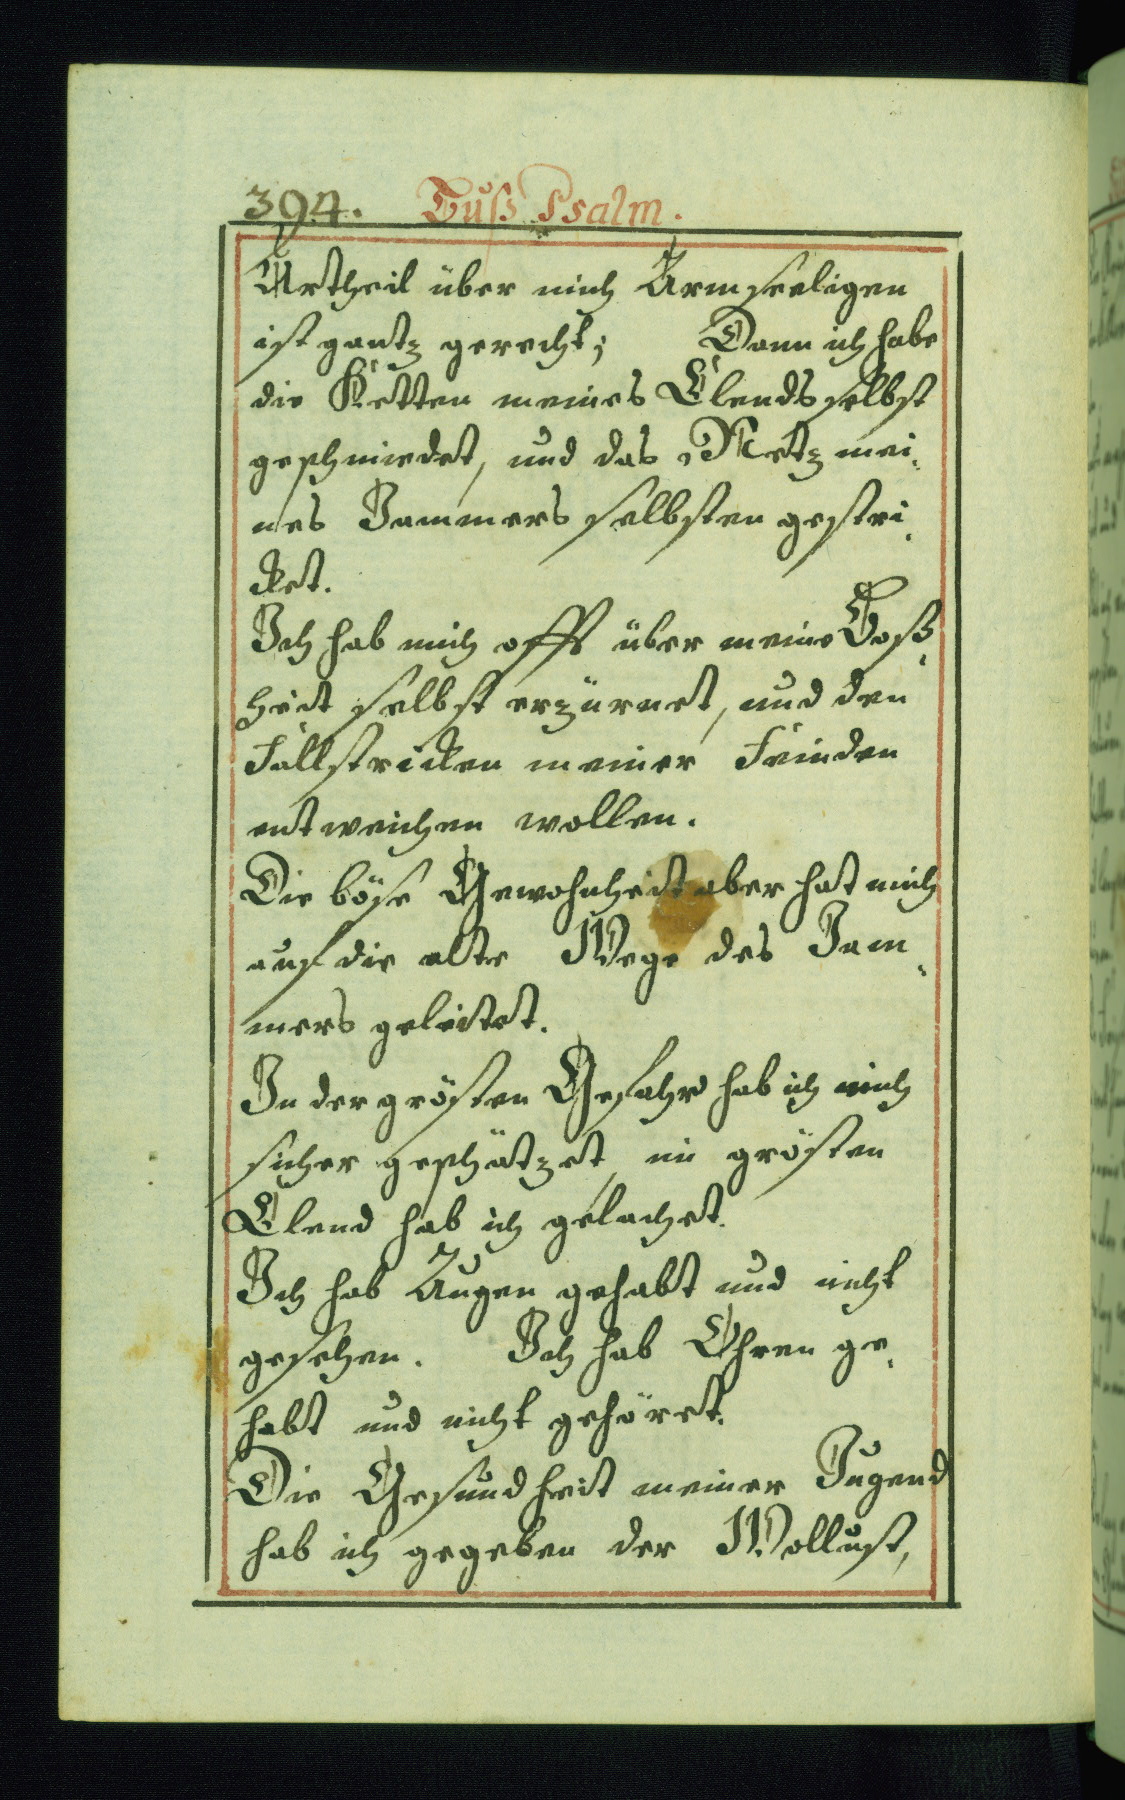 394. Buß Psalm.
Urtheil über mich Armseeligen
ist gantz gerecht; Dann ich habe
die Ketten meines Elends selbst
geschmiedet, und das Netz mei,
nes Jammers selbsten gestri,
cket.
Ich hab mich offt über meine Boß,
heit selbst erzürnet, und den
Fallstricken meiner Feinden
entweichen wollen.
Die böse Gewohnheit aber hat mich
auf die alte Wege des Jam,
mers geleitet.
In der grösten Gefahr hab ich mich
sicher geschätzet, im grösten
Elend hab ich gelachet.
Ich hab Augen gehabt und nicht
gesehen. Ich hab Ohren ge,
habt und nicht gehöret.
Die Gesundheit meiner Jugend
hab ich gegeben der Wollust,